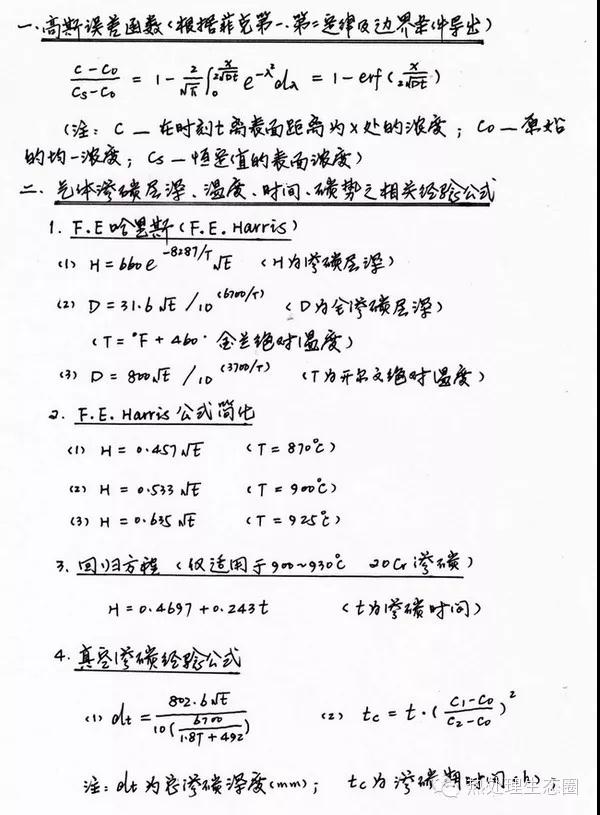 一、高斯误差函数(根据菲克第一、第二定律及边界条件导出)
(C－C0)/(Cs－C0) = 1 － 2/√π ∫₀^(x/2√Dt) e^(-λ²)dλ = 1－erf(x/2√Dt)
(注: C — 在时刻t离表面距离为x处的浓度; C0 — 原始
的均一浓度; Cs — 恒定值的表面浓度)
二、气体渗碳层深、温度、时间、碳势之相关经验公式
1. F.E哈里斯(F.E.Harris)
(1) H = 660e^(-8287/T)√t (H为渗碳层深)
(2) D = 31.6√t / 10^(6700/T) (D为全渗碳层深)
(T = °F + 460· 金兰绝对温度)
(3) D = 800√t / 10^(3700/T) (T为开尔文绝对温度)
2. F.E. Harris 公式简化
(1) H = 0.457√t (T = 870℃)
(2) H = 0.533√t (T = 900℃)
(3) H = 0.635√t (T = 925℃)
3. 回归方程 (仅适用于900~930℃ 20Cr渗碳)
H = 0.4697 + 0.243t (t为渗碳时间)
4. 真空渗碳经验公式
(1) dt = 802.6√t / 10(6700/(1.8T + 492)) (2) tc = t·((C1－C0)/(C2－C0))²
注: dt为总渗碳深度(mm); tc为渗碳期时间(h);
热处理生态圈